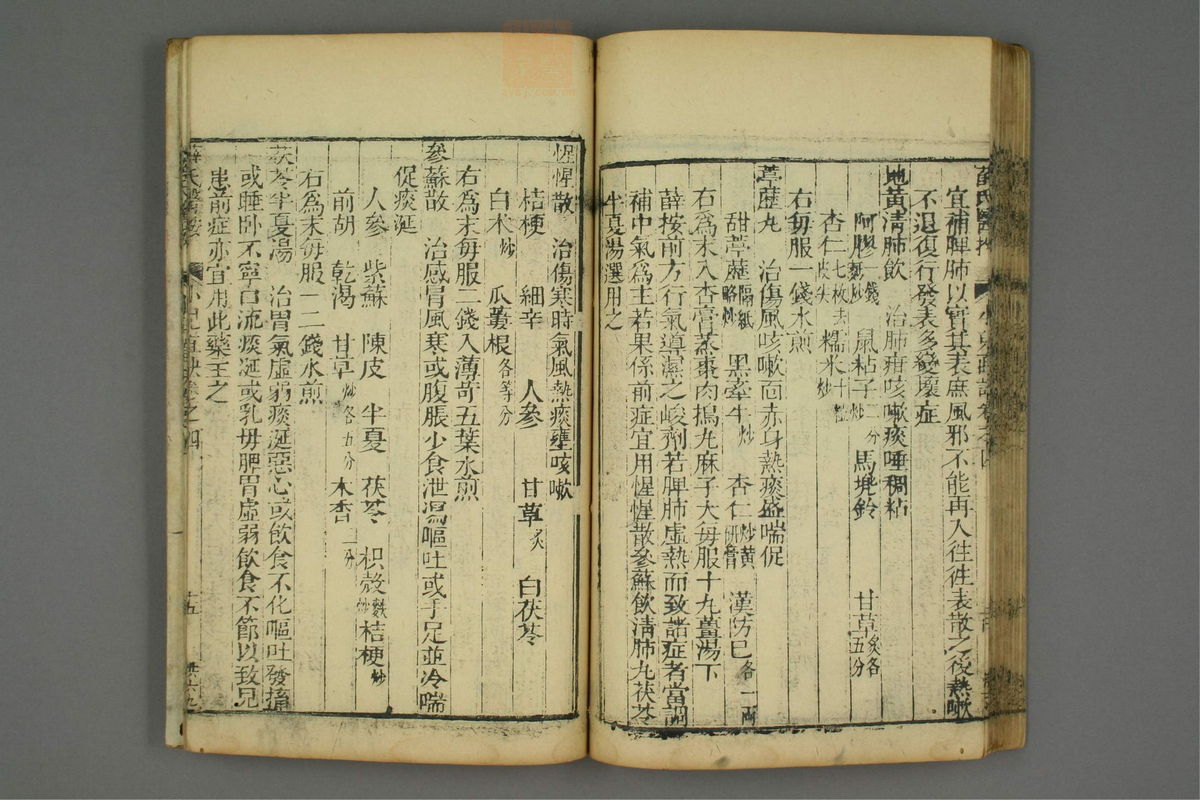 宜補脾肺以實其表庶風邪不能再入徃徃表散之後熱嗽
不退復行發表多變壞症
地黃清肺飲　治肺疳咳嗽痰唾稠粘
阿膠一錢麩炒　鼠粘子二分炒　馬兠鈴　甘草炙各五分
杏仁七枚去皮尖　糯米十粒炒
右每服一錢水煎
葶藶丸　治傷風咳嗽面赤身熱痰盛喘促
甜葶藶隔紙略炒　黑牽牛炒　杏仁炒黄研膏　漢防巳各一兩
右爲末入杏膏蒸棗肉搗丸麻子大每服十九薑湯下
薛按前方行氣導濕之峻劑若脾肺虛熱而致諸症者當調
補中氣爲主若果係前症宜用惺惺散參蘇飲清肺丸茯苓
半夏湯選用之
惺惺散　治傷寒時氣風熱痰壅咳嗽
桔梗　細辛　人參　甘草炙　白茯苓
白术炒　瓜蔞根各等分
右爲末每服二錢入薄荷五葉水煎
參蘇散　治感冒風寒或腹脹少食泄瀉嘔吐或手足並冷喘
促痰涎
人參　紫蘇　陳皮　半夏　茯苓　枳殼麩炒　桔梗炒
前胡　乾渴　甘草炒各五分　木香二分
右爲末每服一二錢水煎
茯苓半夏湯　治胃氣虛弱痰涎惡心或飲食不化嘔吐發搐
或睡卧不寧口流痰涎或乳母脾胃虛弱飲食不節以致兒
患前症亦宜用此藥主之
十五